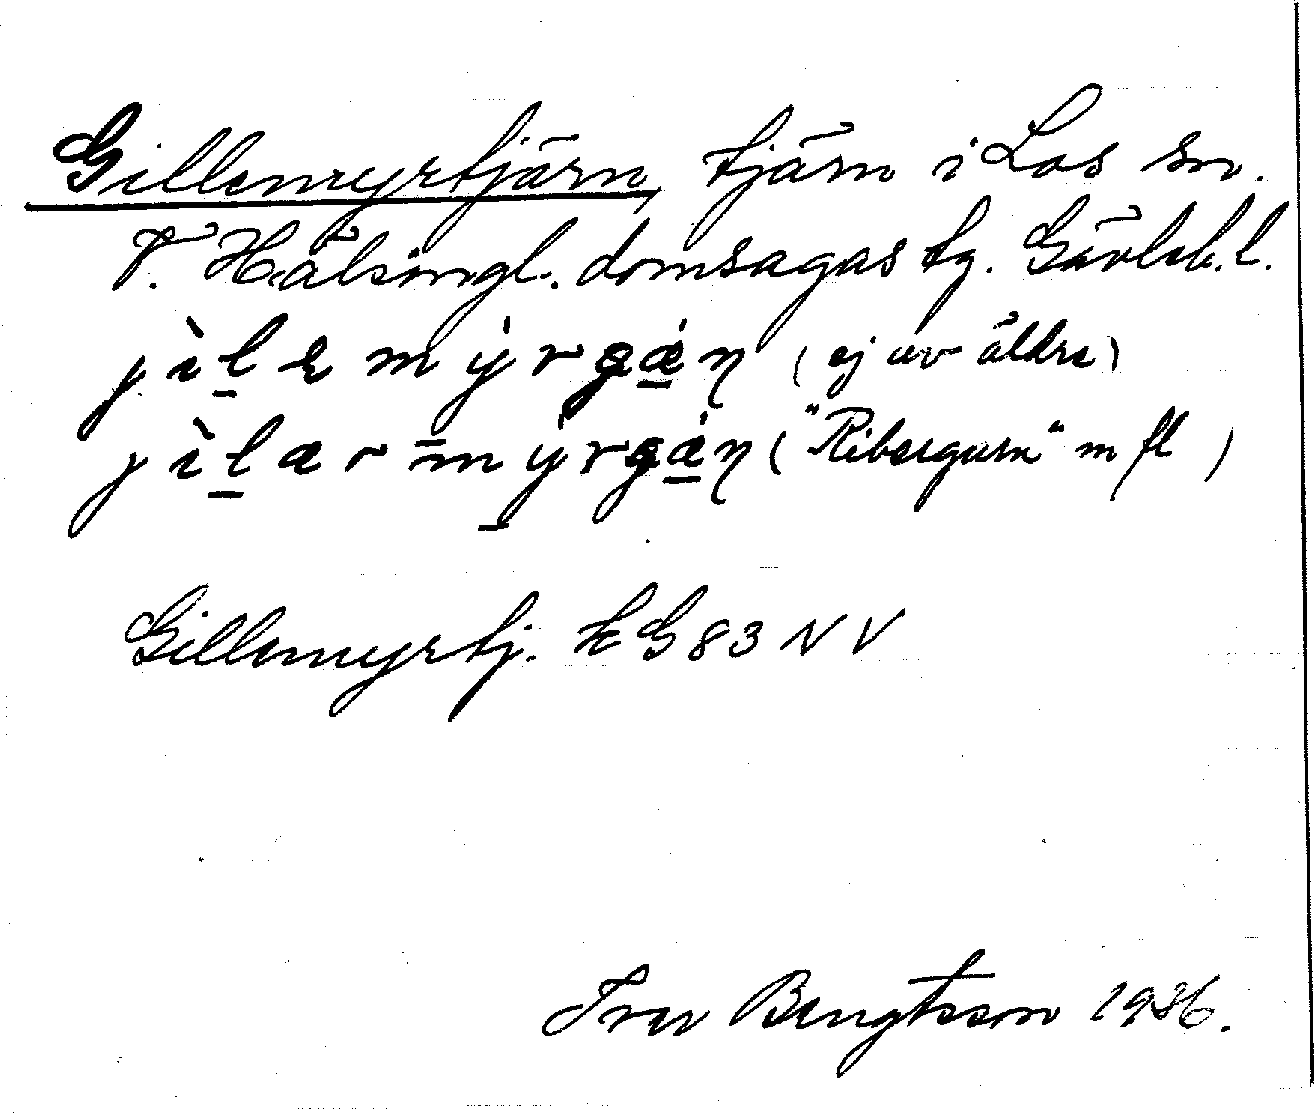 Gillemyrtjärn, tjärn i Los sn.
V. Hälsingl. domsagas tg. Gävleb. l.
(ej av äldre)
("Ribergarn" m fl )
Gillemyrtj. EG 83 NV
Ivar Bengtsson 1936.